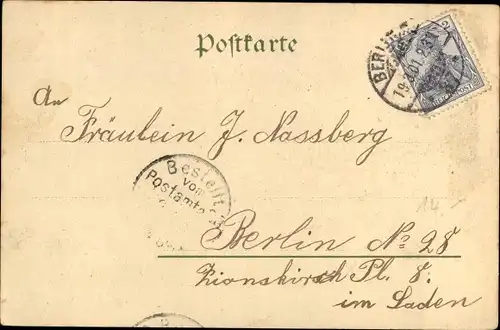 Postkarte
BERLIN
19.4.01. 2-3N
An
Fräulein J. Nassberg
Bestellt
vom
Postamte
Berlin No 28
Zionskirch Pl. 8.
im Laden
14.-